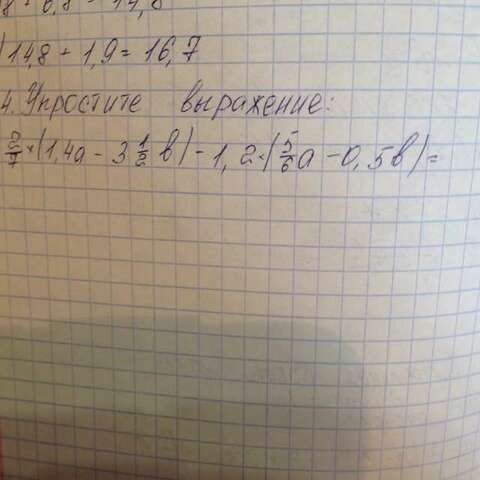 8 + 6,8 = 14,8
14,8 + 1,9 = 16,7
4. Упростите выражение:
2/7 · (1,4а - 3 1/2 в) - 1,2 · (5/6 а - 0,5в) =